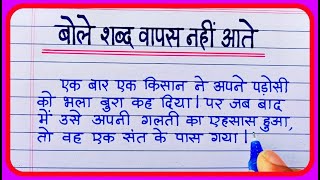 बोले शब्द वापस नहीं आते
एक बार एक किसान ने अपने पड़ोसी
को भला बुरा कह दिया। पर जब बाद
में उसे अपनी गलती का एहसास हुआ,
तो वह एक संत के पास गया।